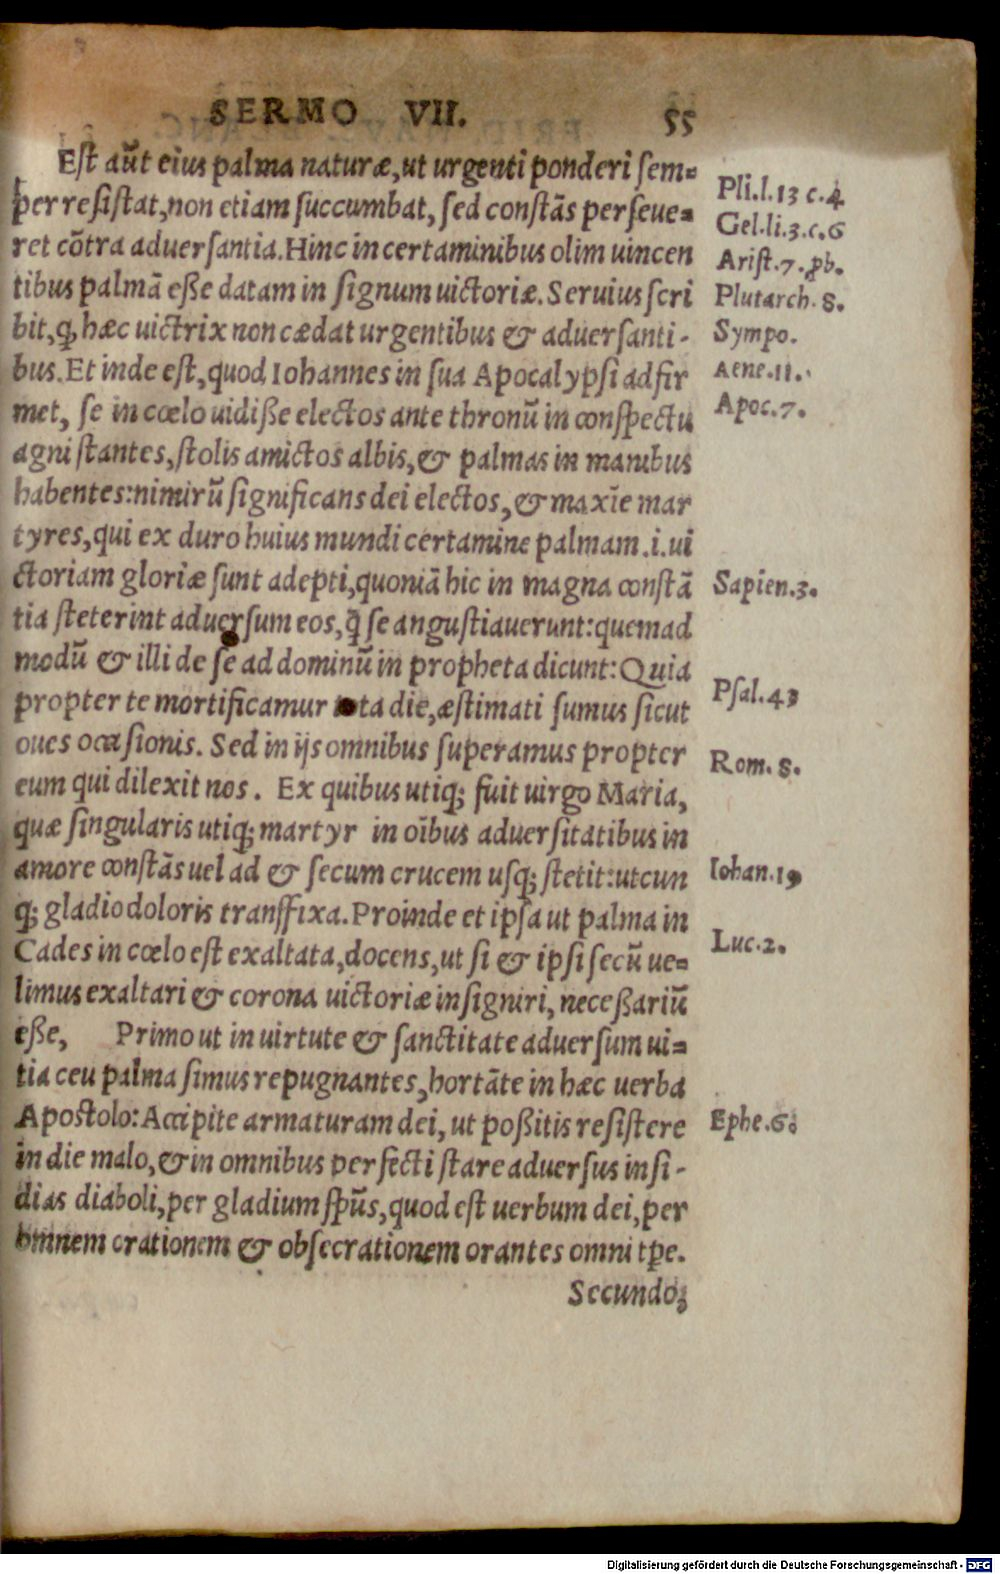 SERMO VII. 55
Est aūt eius palma naturæ, ut urgenti ponderi sem=
per resistat, non etiam succumbat, sed constās perseue=
ret cōtra aduersantia. Hinc in certaminibus olim uincen
tibus palmā eße datam in signum uictoriæ. Seruius scri
bit, ꝙ hæc uictrix non cædat urgentibus & aduersanti-
bus. Et inde est, quod Iohannes in sua Apocalypsi adfir
met, se in cœlo uidiße electos ante thronū in conspectu
agni stantes, stolis amictos albis, & palmas in manibus
habentes: nimirū significans dei electos, & maxīe mar
tyres, qui ex duro huius mundi certamine palmam .i. ui
ctoriam gloriæ sunt adepti, quoniā hic in magna constā
tia steterint aduersum eos, q̄ se angustiauerunt: quemad
modū & illi de se ad dominū in propheta dicunt: Quia
propter te mortificamur tota die, æstimati sumus sicut
oues occasionis. Sed in ijs omnibus superamus propter
eum qui dilexit nos. Ex quibus utiq; fuit uirgo Maria,
quæ singularis utiq; martyr in oībus aduersitatibus in
amore constās uel ad & secum crucem usq; stetit: utcun
q; gladio doloris transfixa. Proinde et ipsa ut palma in
Cades in cœlo est exaltata, docens, ut si & ipsi secū ue=
limus exaltari & corona uictoriæ insigniri, neceßariū
eße, Primo ut in uirtute & sanctitate aduersum ui=
tia ceu palma simus repugnantes, hortāte in hæc uerba
Apostolo: Accipite armaturam dei, ut poßitis resistere
in die malo, & in omnibus perfecti stare aduersus insi-
dias diaboli, per gladium sp̄us, quod est uerbum dei, per
omnem orationem & obsecrationem orantes omni tp̄e.
Secundo,
Pli.l.13 c.4
Gel.li.3.c.6
Arist.7.ꝓb.
Plutarch.8.
Sympo.
Aene.11.
Apoc.7.
Sapien.3.
Psal.43
Rom.8.
Iohan.19
Luc.2.
Ephe.6.
Digitalisierung gefördert durch die Deutsche Forschungsgemeinschaft - DFG